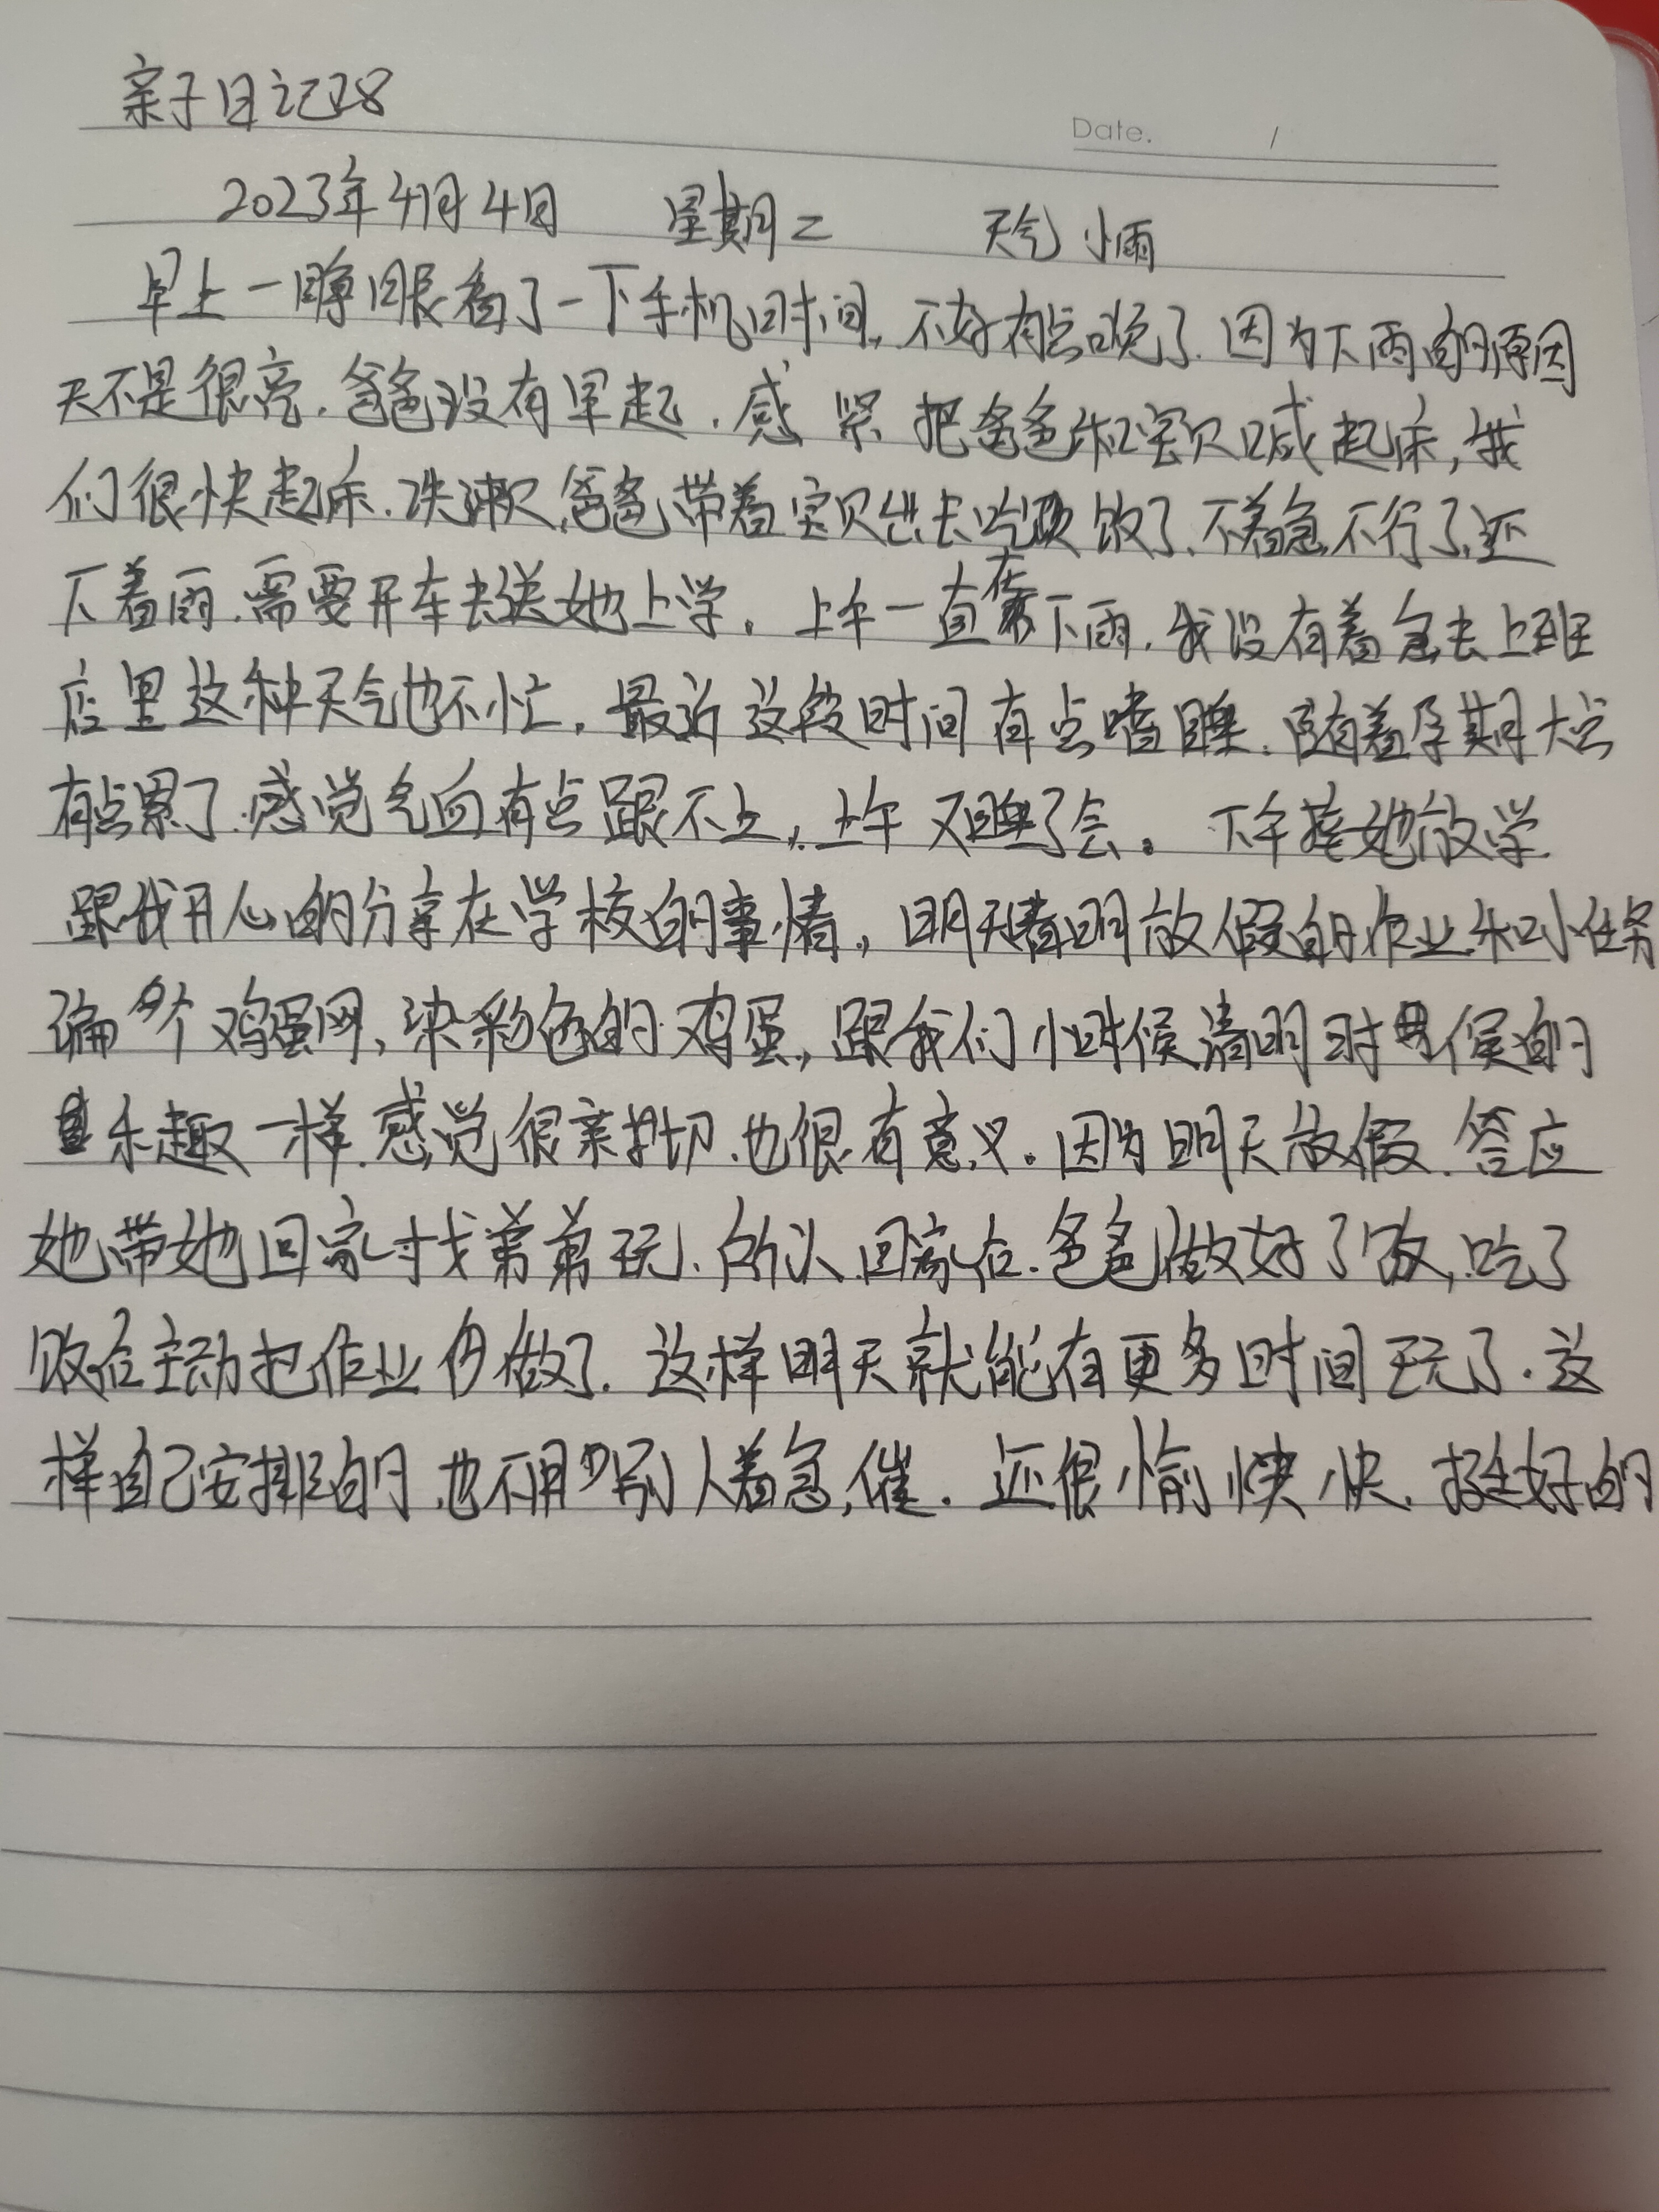 亲子日记28
Date. /
2023年4月4日 星期二 天气 小雨
早上一睁眼看了一下手机时间,不好有点晚了.因为下雨的原因
天不是很亮.爸爸没有早起.感紧把爸爸和宝贝喊起床,我
们很快起床.洗漱.爸爸带着宝贝出去吃饭了.不着急不行了,还
下着雨.需要开车去送她上学。上午一直在下雨.我没有着急去上班
店里这种天气也不忙。最近这段时间有点嗜睡.随着孕期大点
有点累了.感觉气血有点跟不上,上午又睡了会。下午接她放学
跟我开心的分享在学校的事情,明天清明放假的作业和小任务
编个鸡蛋网,染彩色的鸡蛋,跟我们小时候清明时候的
乐趣一样.感觉很亲切.也很有意义。因为明天放假.答应
她带她回家找弟弟玩.所以回家后.爸爸做好了饭,吃了
饭后主动把作业做了.这样明天就能有更多时间玩了.这
样自己安排的.也不用别人着急,催.还很愉快快.挺好的